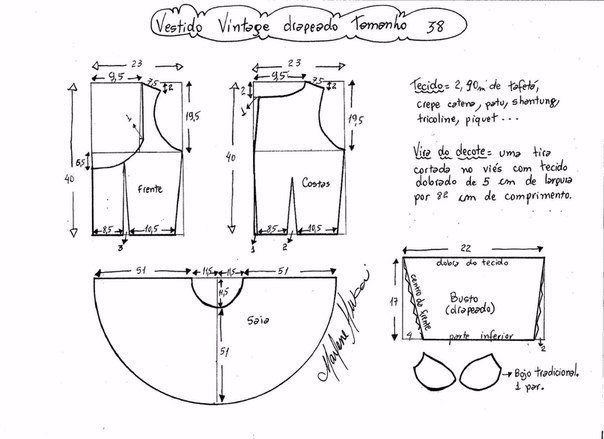 Vestido Vintage drapeado Tamanho 38
23
9,5
7,5
2
19,5
1
6,5
40
Frente
8,5
10,5
3
23
9,5
7,5
2
2
19,5
1
40
Costas
8,5
10,5
1
2
Tecido = 2,90m de tafetá,
crepe catena, patu, shantung,
tricoline, piquet ...
Vira do decote = uma tira
cortada no viés com tecido
dobrado de 5 cm de largura
por 82 cm de comprimento.
51
11,5
11,5
51
11,5
Saia
51
Marlene Mukai
22
dobra do tecido
17
centro da frente
Busto
(drapeado)
parte inferior
4
2
Bojo tradicional.
1 par.